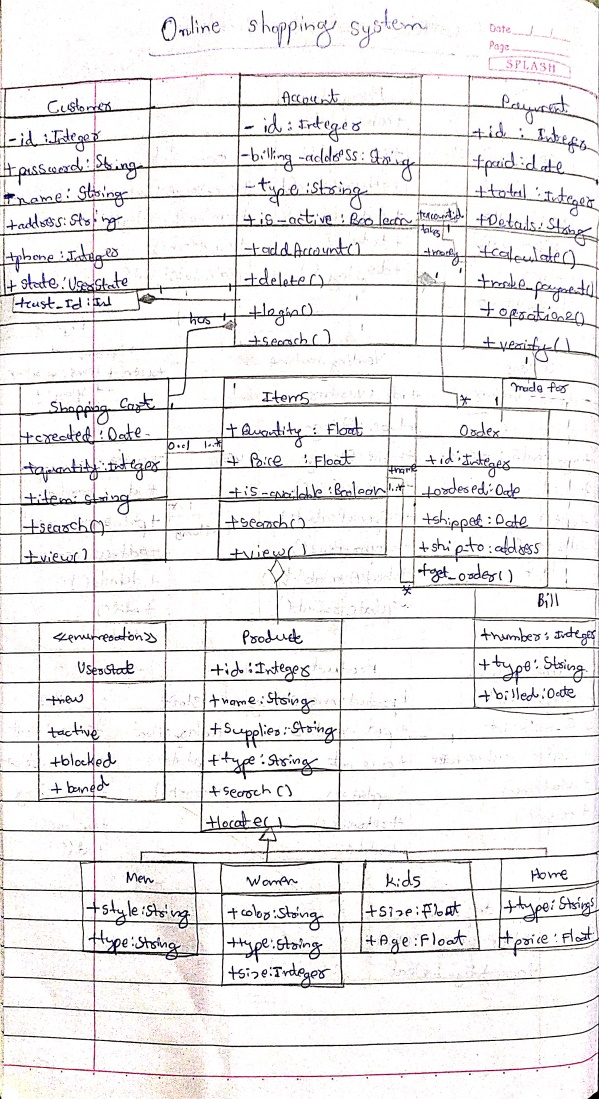 Online shopping system
Date
Page
SPLASH
Customer
-id: Integer
+password: String
+name: String
+address: String
+phone: Integer
+state: UserState
+cust_Id: Int
Account
-id: Integer
-billing-address: String
-type: String
+is-active: Boolean
+addAccount()
+delete()
+login()
+search()
Payment
+id: Integer
+paid: date
+total: Integer
+Details: String
+calculate()
+make_payment()
+operations()
+verify()
+accountid
takes
1
+money
1
1
1
has
made for
*
Shopping Cart
+created: Date
+quantity: Integer
+item: string
+search()
+view()
0..1 1..*
Items
+Quantity: Float
+Price: Float
+is-available: Boolean
+search()
+view()
+name
1..*
*
Order
+id: Integer
+ordered: Date
+shipped: Date
+ship-to: address
+get_order()
Bill
+number: Integer
+type: String
+billed: Date
<<enumeration>>
UserState
+new
+active
+blocked
+baned
Product
+id: Integer
+name: String
+Supplier: String
+type: String
+search()
+locate()
Men
+style: String
+type: String
Women
+color: String
+type: String
+size: Integer
Kids
+Size: Float
+Age: Float
Home
+type: Strings
+price: Float